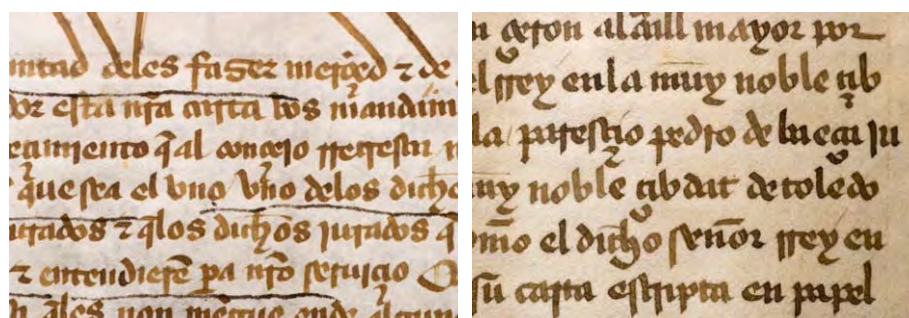 untad deles fazer merçed τ de
esta nr̃a carta vos mandam
q̃ al conçejo rrecresca
que sea el vno vno delos dicho
jurados τ q̃los dichos jurados q
τ entendierẽ pa nr̃o seruiçio
ales non mengue ende algun
n çeron alcall mayor por
el rrey enla muy noble çib
la paresçio pedro de ju
muy noble çibdat de toledo
omo el dicho señor rrey en
su carta escripta en papel